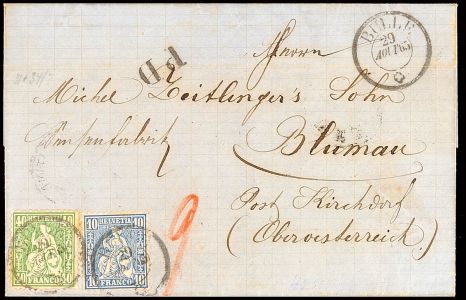 BULLE
29
AOUT 65
PD
Herrn
Michel Zeitlinger's Sohn
Sensenfabrik
Blumau
Post Kirchdorf
(Oberoesterreich)
9
40 HELVETIA 40
40 FRANCO 40
10 HELVETIA 10
10 FRANCO 10